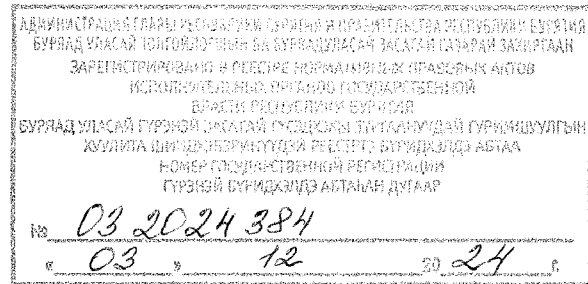 АДМИНИСТРАЦИЯ ГЛАВЫ РЕСПУБЛИКИ БУРЯТИЯ И ПРАВИТЕЛЬСТВА РЕСПУБЛИКИ БУРЯТИЯ
БУРЯАД УЛАСАЙ ТОЛГОЙЛОГШЫН БА БУРЯАД УЛАСАЙ ЗАСАГАЙ ГАЗАРАЙ ЗАХИРГААН
ЗАРЕГИСТРИРОВАНО В РЕЕСТРЕ НОРМАТИВНЫХ ПРАВОВЫХ АКТОВ
ИСПОЛНИТЕЛЬНЫХ ОРГАНОВ ГОСУДАРСТВЕННОЙ
ВЛАСТИ РЕСПУБЛИКИ БУРЯТИЯ
БУРЯАД УЛАСАЙ ГҮРЭНЭЙ ЗАСАГАЙ ГҮЙСЭДХЭХЫ ЗУРГААНУУДАЙ ГУРИМШУУЛГЫН
ХУУЛИТА ШИИДХЭБЭРИНҮҮДЭЙ РЕЕСТРТЭ БҮРИДХЭЛДЭ АБТАА
НОМЕР ГОСУДАРСТВЕННОЙ РЕГИСТРАЦИИ
ГҮРЭНЭЙ БҮРИДХЭЛДЭ АБТАҺАН ДУГААР
№ 03 2024 384
« 03 » 12 20 24 г.